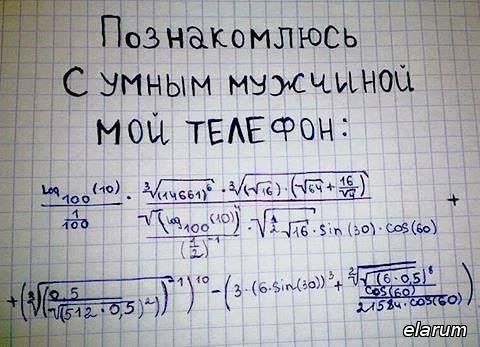 Познакомлюсь
с умным мужчиной
мой телефон:
log₁₀₀(10)/(1/100) · ∛((14661)⁶) · ∛((√16) · (√64 + 16/√4)) / (√((log₁₀₀(10))⁴/(1/2)⁻¹) · √(1/2 √16) · sin(30) · cos(60)) +
+ (∛((0.5/√((512 · 0,5)²))⁻¹))¹⁰ − (3 · (6 · sin(30))³ + ∛(√((6 · 0,5)⁸)/cos(60))/(21584 · cos(60)))
elarum